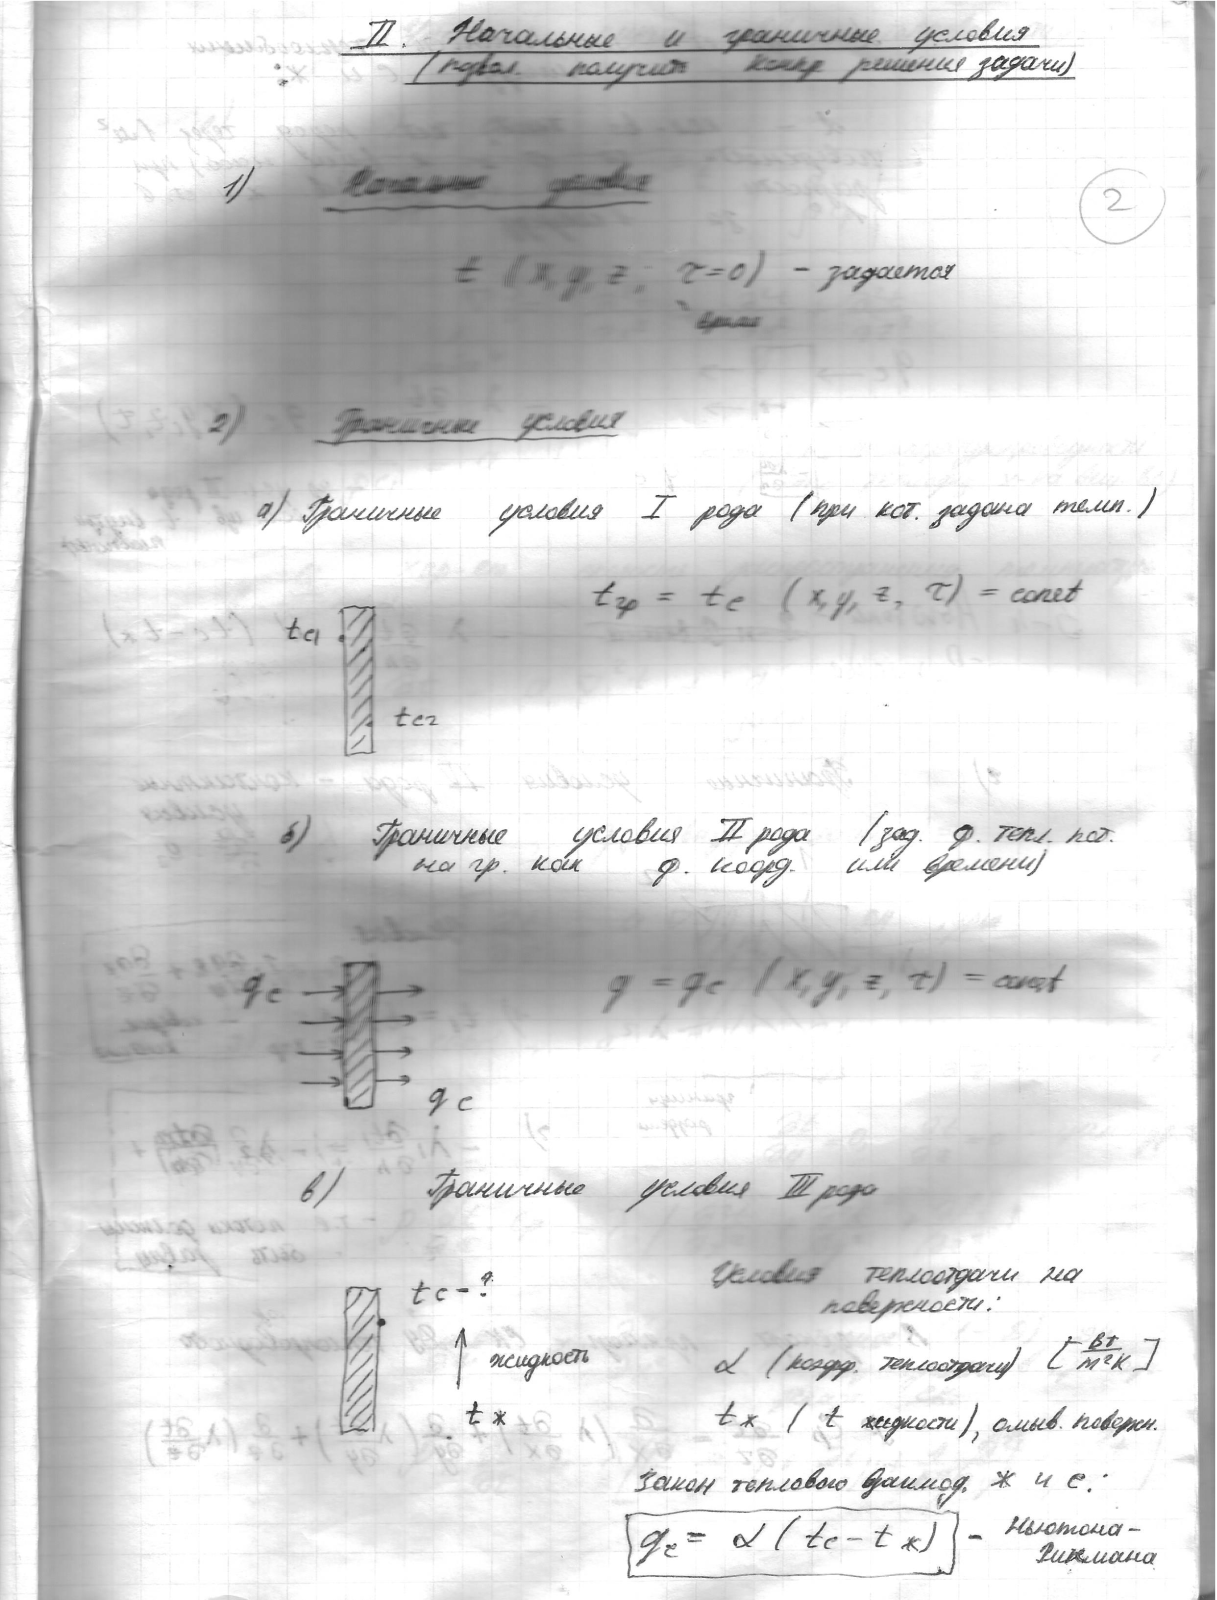 II. Начальные и граничные условия
(позвол. получить конкр решение задачи)
1) Начальные условия
2
t (x, y, z, τ=0) – задается
время
2) Граничные условия
а) Граничные условия I рода (при кот. задана темп.)
tгр = tc (x, y, z, τ) = const
tc1
tc2
б) Граничные условия II рода (зад. ф. тепл. пот.
на гр. как ф. коорд. или времени)
qc
q = qc (x, y, z, τ) = const
qc
в) Граничные условия III рода
tc - ?
Условия теплоотдачи на
поверхности:
жидкость
α (коэфф. теплоотдачи) [Вт/м²К]
tж
tж (t жидкости), омыв. поверхн.
Закон теплового взаимод. ж и с:
qc = α (tc – tж) – Ньютона-
Рихмана